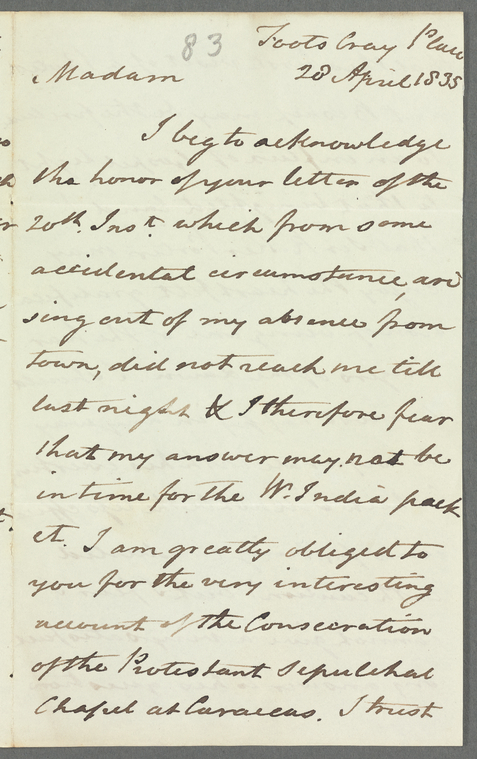 83
Foots Cray Place
Madam 28 April 1835
I beg to acknowledge
the honor of your letter of the
20th. Inst. which from some
accidental circumstance, ari
sing out of my absence from
town, did not reach me till
last night & I therefore fear
that my answer may not be
in time for the W. India pack
et. I am greatly obliged to
you for the very interesting
account of the Consecration
of the Protestant Sepulchal
Chapel at Caraccas. I trust